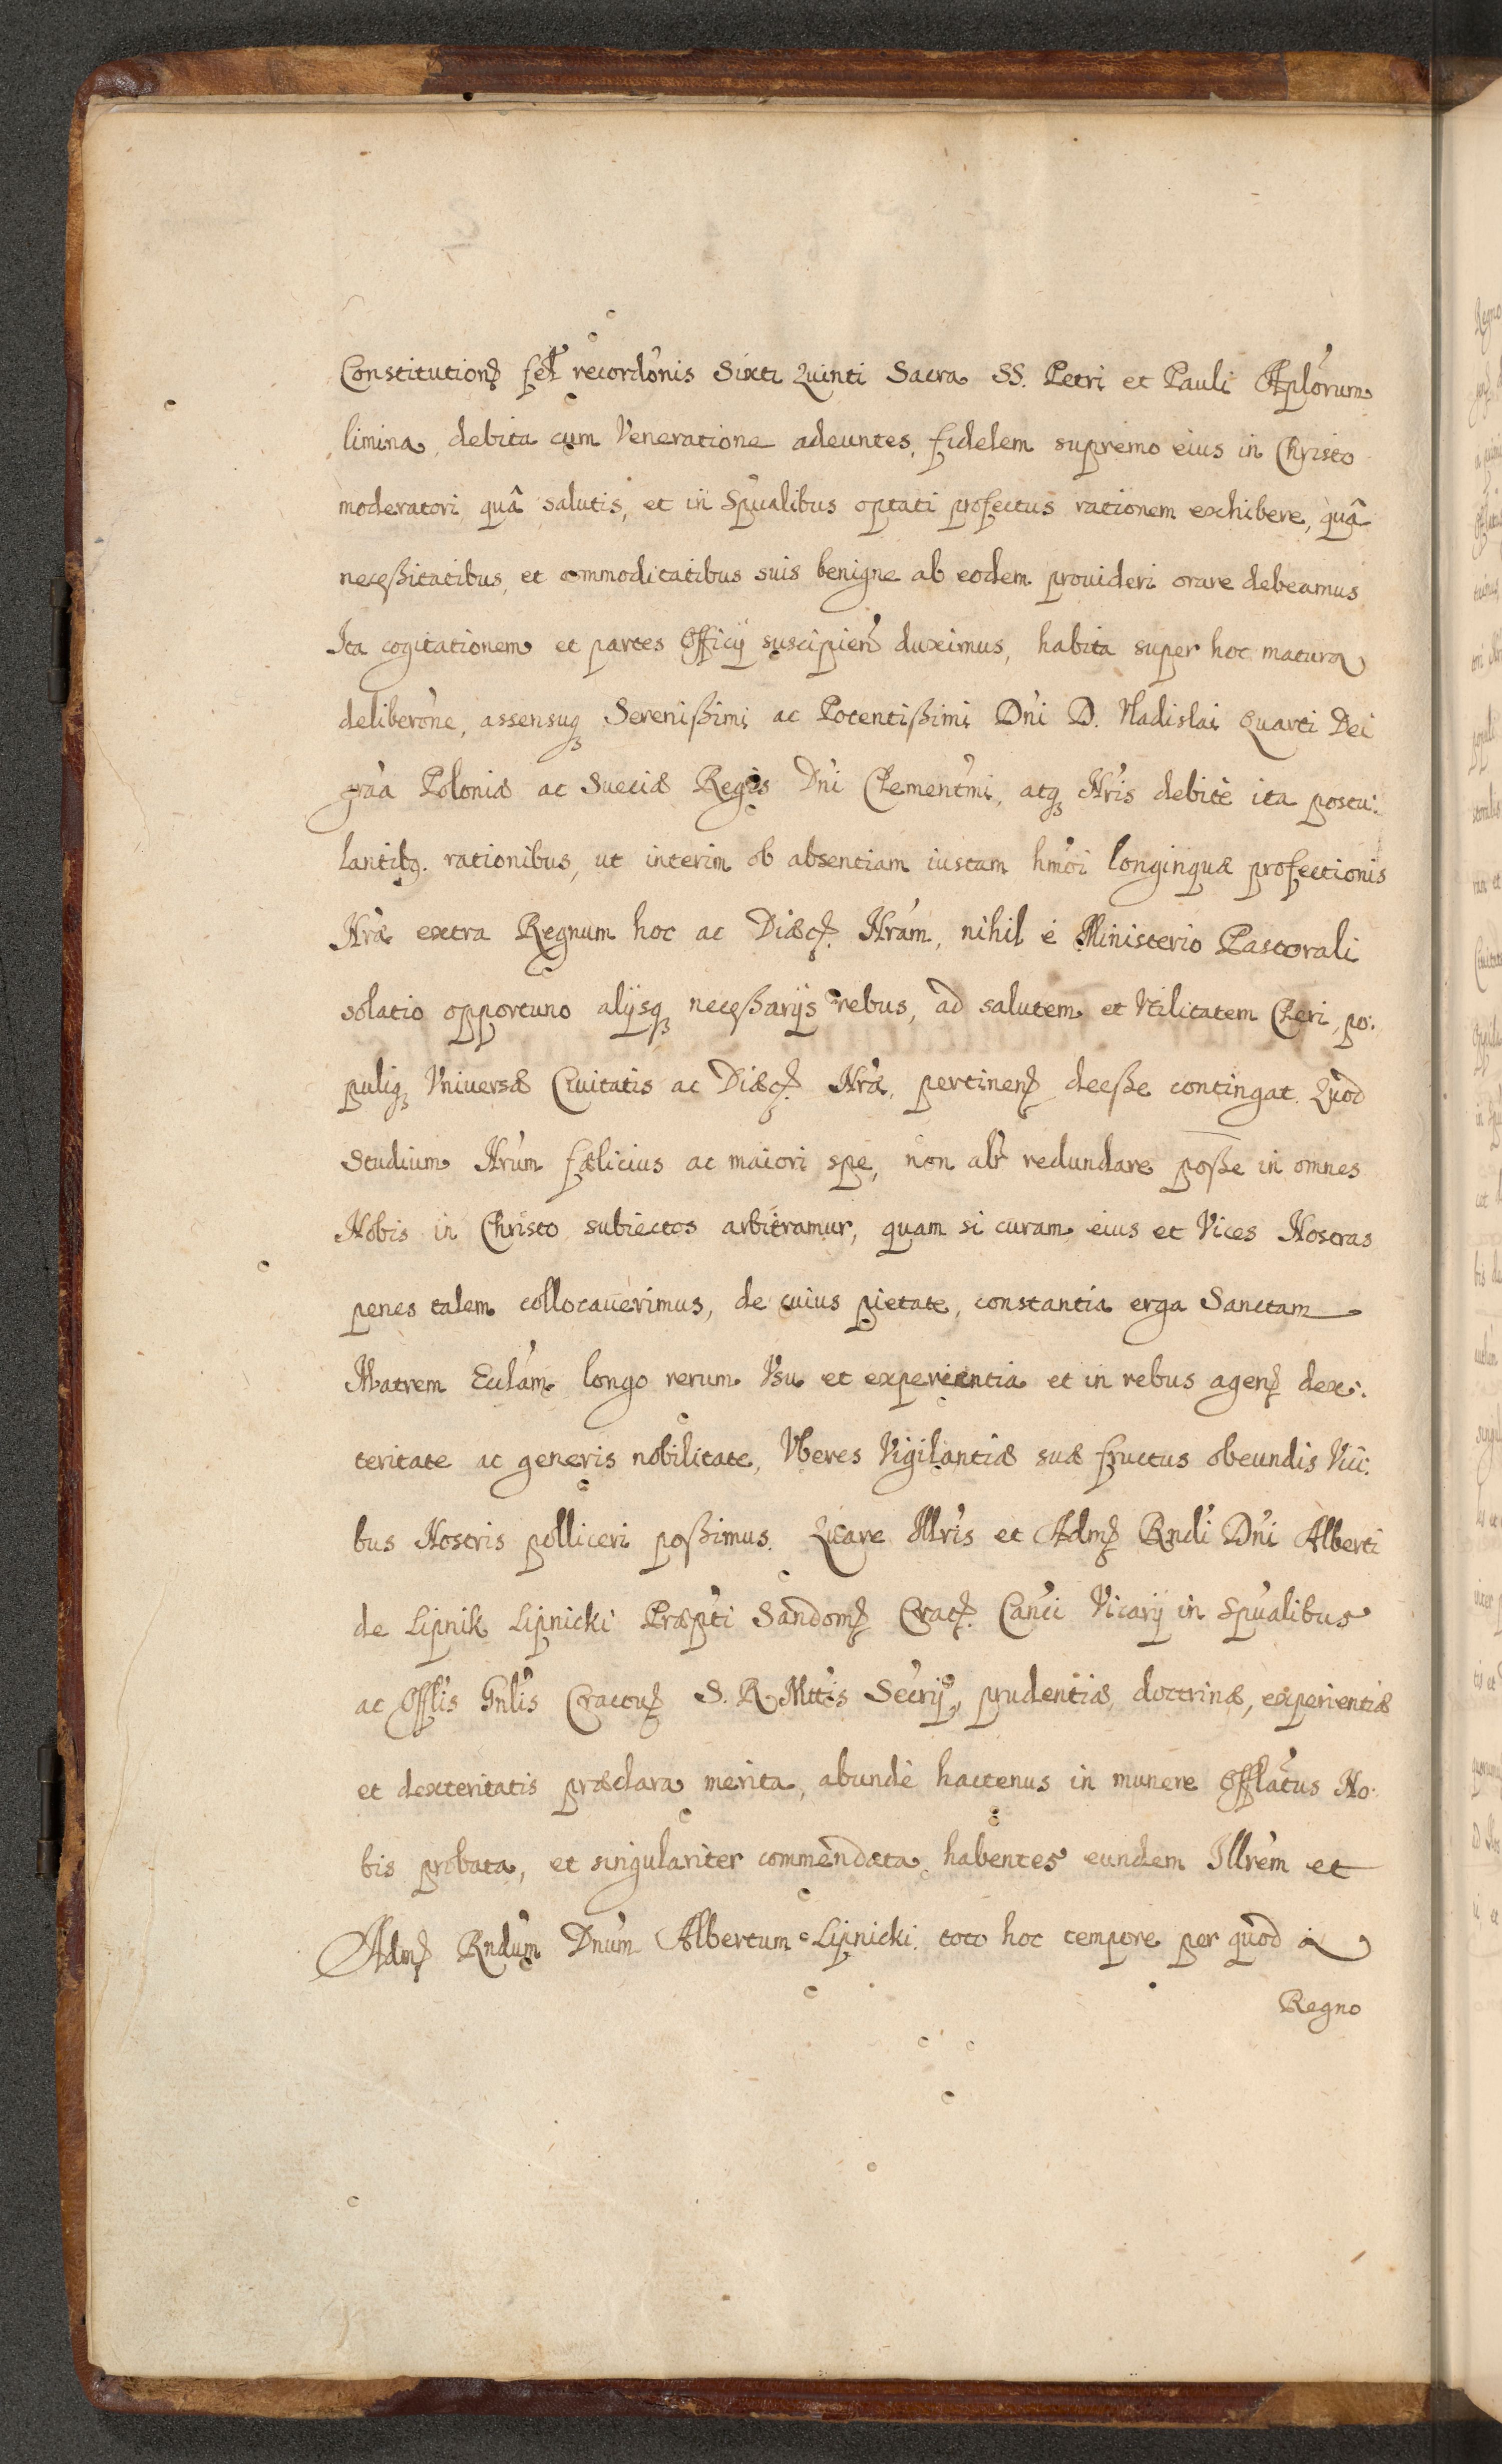 Constitution̄ fel: recordōnis Sixti Quinti Sacra SS. Petri et Pauli Aplōrum
limina, debita cum Veneratione adeuntes, fidelem supremo eius in Christo
moderatori quâ salutis, et in Spūalibus optati profectus rationem exhibere, quâ
neceßitatibus, et ommoditatibus suis benigne ab eodem prouideri orare debeamus
Ita cogitationem et partes Officij suscipien̄ duximus, habita super hoc matura
deliberōne, assensuq₃ Sereniẞimi ac Potentißimi Dn̄i D. Vladislai Quarti Dei
gr̄a Poloniæ ac Sueciæ Regis Dn̄i Clementm̄i, atq₃ Nr̄is debitè ita postu:
lantibq. rationibus, ut interim ob absentiam iustam hmōi longinquæ profectionis
Nr̄æ extra Regnum hoc ac Diæc̄. Nr̄am, nihil è Ministerio Pastorali
solatio opportuno alijsq₃ neceßarijs rebus, ad salutem et Vtilitatem Cleri, po:
puliq₃ Vniuersæ Ciuitatis ac Diæc̄. Nr̄æ, pertinen̄ deeße contingat. Quod
Studium Nr̄um fælicius ac maiori spe, non alr̄ redundare poße in omnes
Nobis in Christo subiectos arbitramur, quam si curam eius et Vices Nostras
penes talem collocauerimus, de cuius pietate, constantia erga Sanctam
Matrem Eccl̄am longo rerum Vsu et experientia et in rebus agen̄ dex:
teritate ac generis nobilitate, Vberes Vigilantiæ suæ fructus obeundis Vici:
bus Nostris polliceri poßimus. Quare Illr̄is et Adm̄ Rn̄di Dn̄i Alberti
de Lipnik Lipnicki Præpt̄i Sandom̄ Crac̄. Can̄ci Vicarij in Spūalibus
ac Offl̄is Gn̄lis Cracou̅ S. R. Mtt̄is Secr̄ij, prudentiæ, doctrinæ, experientiæ
et dexteritatis præclara merita, abundè hactenus in munere Offlāt̄us No:
bis probata, et singulariter commendata habentes eundem Illr̄em et
Adm̄ Rn̄dum Dn̄um Albertum Lipnicki toto hoc tempore per quod à
Regno